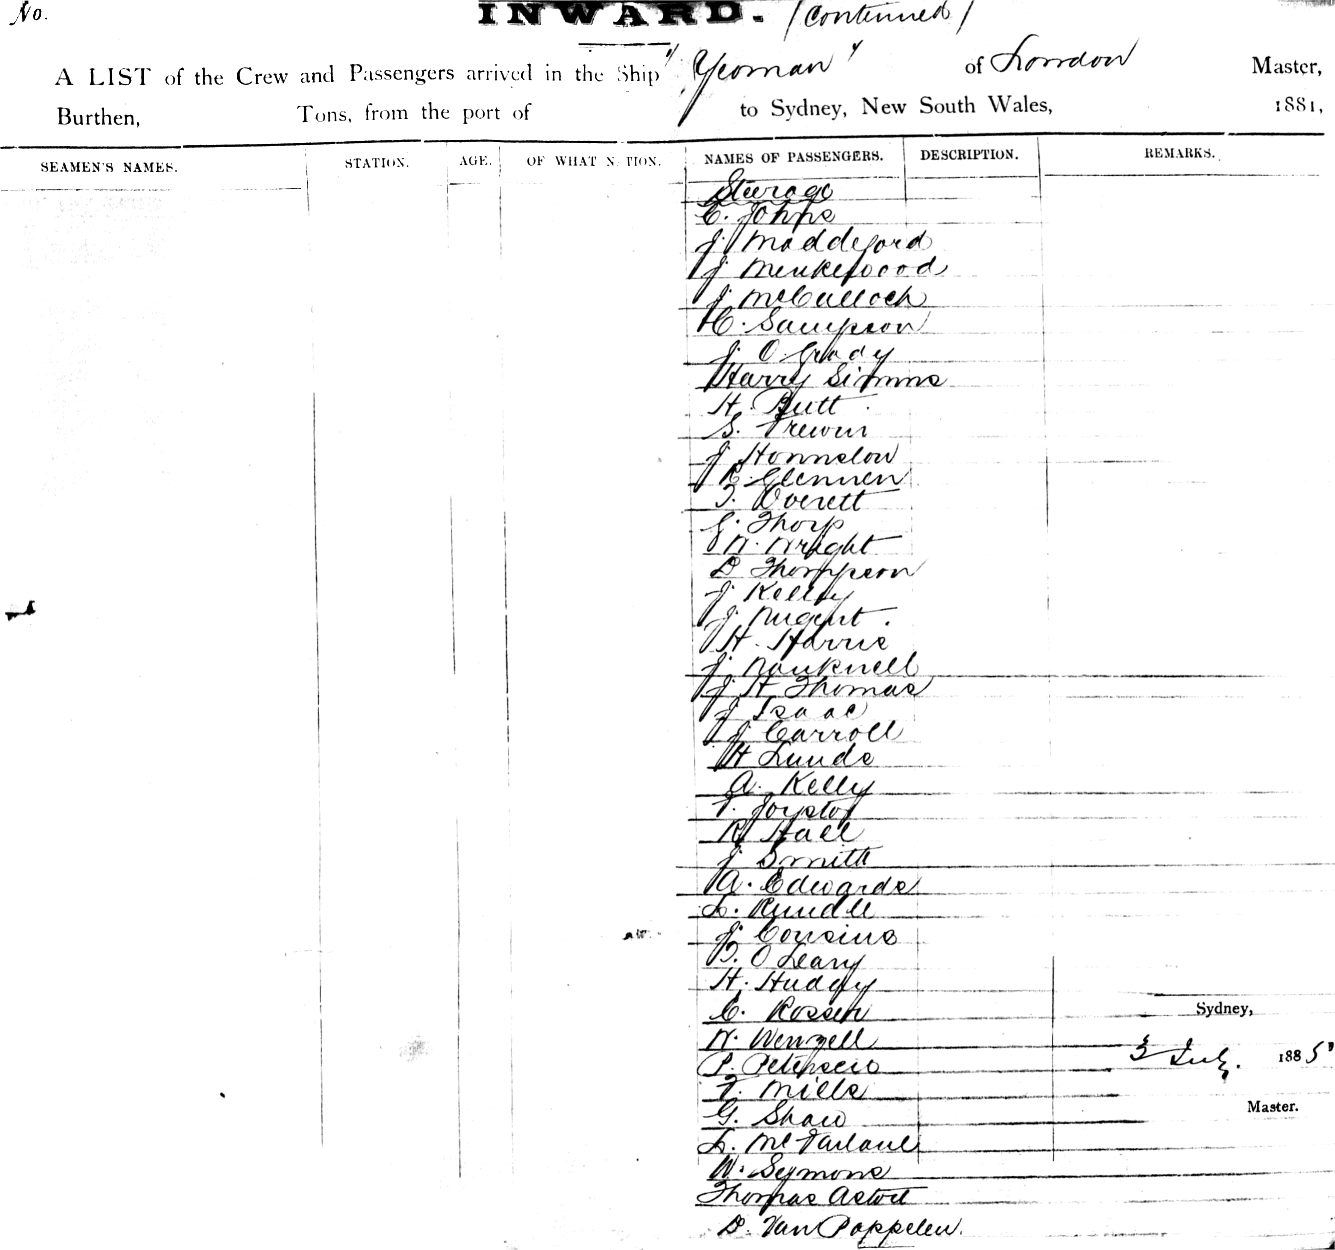 No.
INWARD. (Continued)
A LIST of the Crew and Passengers arrived in the Ship "Yeoman" of London Master,
Burthen, Tons, from the port of to Sydney, New South Wales, 1881,
SEAMEN'S NAMES. STATION. AGE. OF WHAT N TION. NAMES OF PASSENGERS. DESCRIPTION. REMARKS.
Steerage
C. Johns
J Maddeford
J
J McCulloch
H. Sampson
J. O Grady
Harry Simms
H. Butt
S. Trewin
J Honnslow
Glennen
T. Overett
G. Thorp
W. Wright
D Thompson
J Kelly
J Nugent.
H. Harris
J
J H Thomas
J Isaac
J Carroll
H Lunds
A. Kelly
T.
R Hall
J Smith
A. Edwards
L. Rundle
J Cousins
O Leary
H.
C. Rossen
Sydney,
W. Wenzell
3 July. 1885
P.
T. Mills
G. Shaw
Master.
L. McFarlane
W. Symons
Thomas
D. Van Poppelen.